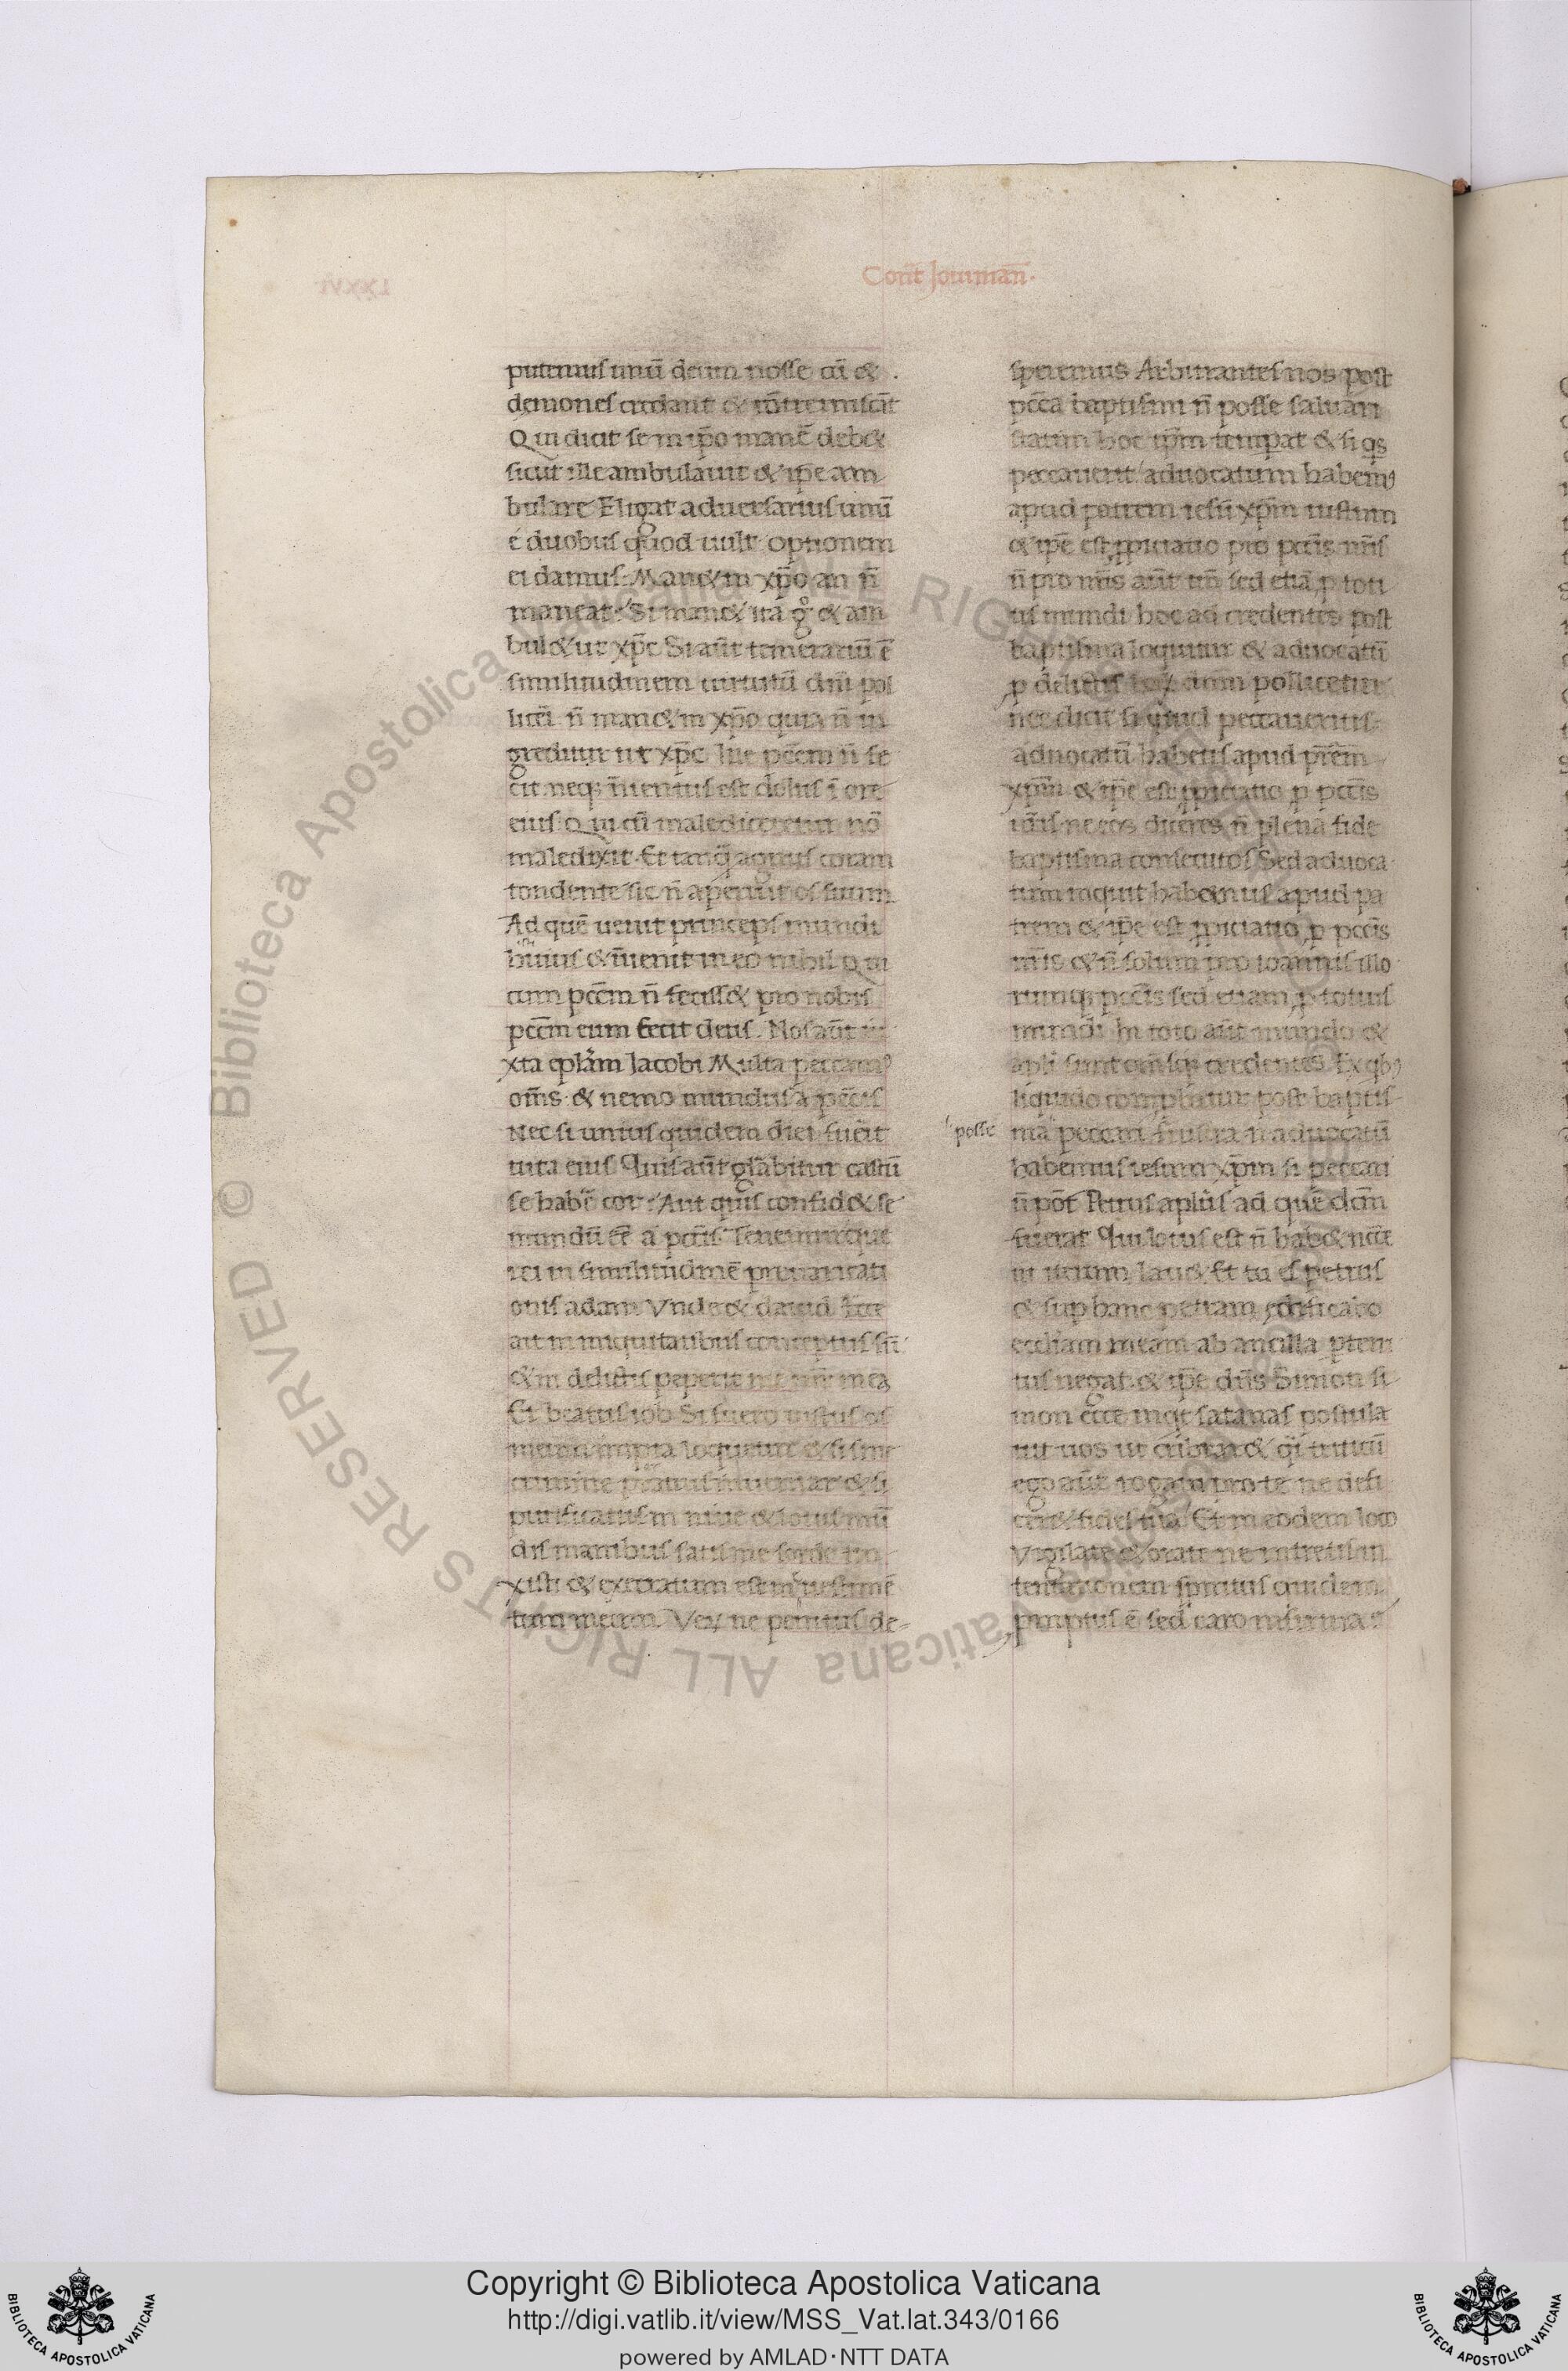 Cont̄ Jouinian̄.
putemus unū deum nosse cū &
demones credant & cōtremiscāt
Qui dicit se in xp̄o manē deb&
sicut ille ambulauit & ip̄e am
bulare Eligat aduersarius unū
e duobus quod uult optionem
ei damus. Man& in xp̄o an n̄
maneat. Si man& ita g̊ & am
bul& ut xp̄c Si aūt temerariū ē
similitudinem uirtutū dn̄i pol
licēi n̄ man& in xp̄o quia n̄ in
greditur ut xp̄c hic pc̄cm n̄ fe
cit neq; īuentus est dolus ī ore
eius. Qui cū malediceretur nō
maledixit. Et tanq̄ agnus coram
tondente sic n̄ aperuit os suum
Ad quē uenit princeps mundi
huius & īuenit in eo nihil Qui
cum pcc̄m n̄ feciss& pro nobis
pcc̄m eum fecit deus. Nos aūt iu
xta ep̄lam Iacobi Multa peccamꝰ
om̄s & nemo mundus a pecc̄is
Nec si unius quidem diei fuerit
uita eius Quis aūt gl̄abitur castū
se habē cor. Aut quis confid& se
mundū eē a pecc̄is Tenemurque
rei in similitudinē preuaricati
onis adam Vnde & dauid Ecce
ait in iniquitatibus conceptus sū
& in delictis peperit me mr̄ mea
Et beatus iob Si fuero iustus os
meum impia loquetur & si sine
crimine prauus inueniar & si
purificatus in niue & lotus mū
dis manibus satis me sorde tin
xisti & execratum est me uestimē
tum meum. Ver, ne penitus de-
speremus Arbitrantes nos post
pcc̄a baptism̄ n̄ posse saluari
statim hoc ip̄m temp̄at & si q̄s
peccauerit aduocatum habemꝰ
apud patrem iesū xp̄m iustum
& ip̄e est ꝓpiciatio pro pecc̄is nr̄is
n̄ pro nr̄is aūt tm̄ sed etiā ꝓ toti
us mundi hoc ad credentes post
baptisma loquitur & aduocatū
ꝓ delictis hoꝝ dn̄m pollicetur
nec dicit si quid peccaueritis
aduocatū habetis apud pr̄em
xp̄m & ip̄e est ꝓpiciatio ꝓ pecc̄is
ur̄is ne eos diceres n̄ plena fide
baptisma consecutos Sed aduoca
tum inquit habemus apud pa
trem & ip̄e est ꝓpiciatio ꝓ pecc̄is
nr̄is & n̄ solum pro ioannis illo
rumq; pecc̄is sed etiam ꝓ totius
mundi In toto aūt mundo &
apl̄i sunt om̄sq; credentes Ex qbꝰ
liquido comp̄batur post baptis-
posse ma peccari frustra n̄ aduocatū
habemus iesum xp̄m si peccari
n̄ pōt Petrus apl̄us ad quē dcm̄
fuerat Qui lotus est n̄ hab& nēcē
ut iterum lau& Et tu es petrus
& sup hanc petram edificabo
eccl̄iam meam ab ancilla ptem
tus negat. & ip̄e dn̄s Simon si
mon ecce inq̄t satanas postula
uit uos ut cribrar& q̄i triticū
ego aūt rogaui pro te ne defi
cer& fides tua Et in eodem loco
Vigilate & orate ne intretis in
tentationem spiritus quidem
pmptus ē sed caro infirma
Copyright © Biblioteca Apostolica Vaticana
http://digi.vatlib.it/view/MSS_Vat.lat.343/0166
powered by AMLAD·NTT DATA
BIBLIOTECA APOSTOLICA VATICANA
BIBLIOTECA APOSTOLICA VATICANA
© Biblioteca Apostolica Vaticana ALL RIGHTS RESERVED